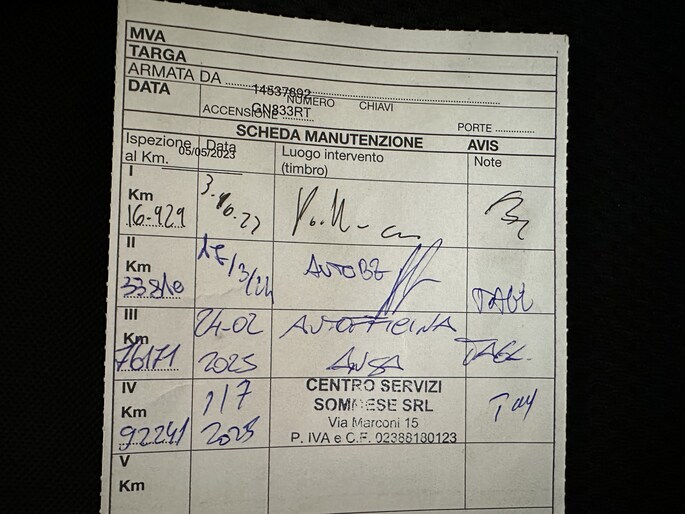 MVA
TARGA
ARMATA DA ..............................................
14537692
DATA
NUMERO CHIAVI
GN833RT
ACCENSIONE
PORTE ..............
SCHEDA MANUTENZIONE AVIS
Ispezione Data Luogo intervento Note
al Km. 05/05/2023 (timbro)
I
Km
16-929
II
Km AUTOBZ
33810 TAGL
III 24-02 AUTOFFICINA
Km
76171 2025 ANSA TAGL.
IV 1/7 CENTRO SERVIZI
Km SOMMESE SRL
92241 2025 Via Marconi 15
P. IVA e C.F. 02388180123
V
Km